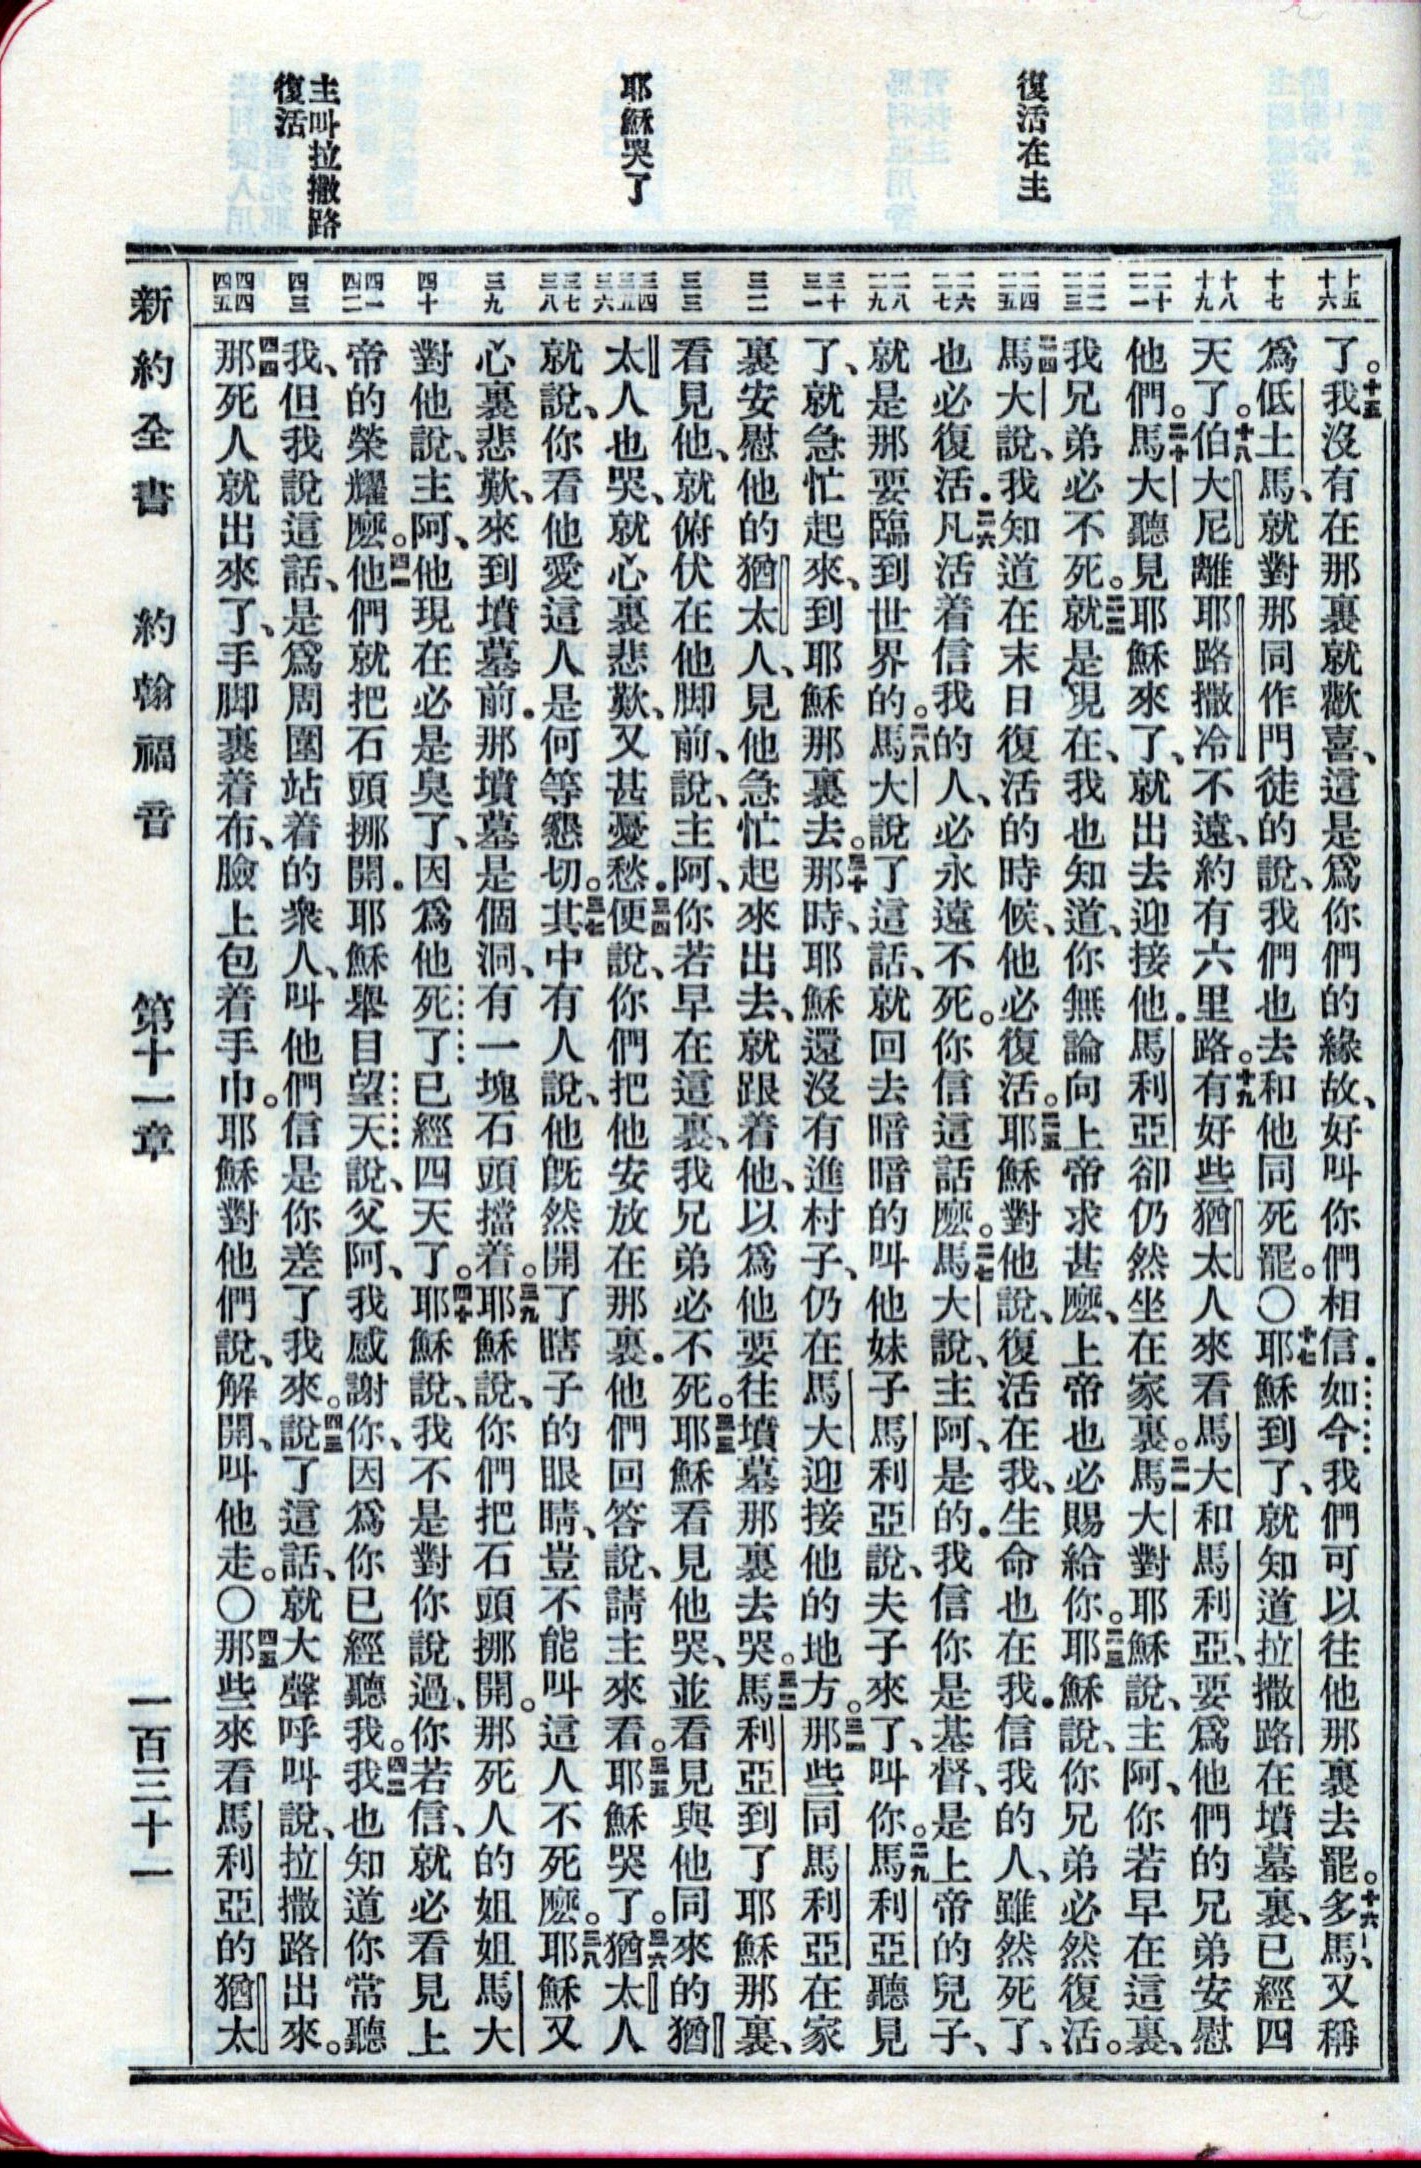 復活在主
耶穌哭了
主叫拉撒路
復活
十五
十六
十七
十八
十九
二十
二一
二二
二三
二四
二五
二六
二七
二八
二九
三十
三一
三二
三三
三四
三五
三六
三七
三八
三九
四十
四一
四二
四三
四四
四五
了。十五我沒有在那裏就歡喜、這是爲你們的緣故、好叫你們相信．如今我們可以往他那裏去罷。十六多馬、又稱
爲低土馬、就對那同作門徒的說、我們也去和他同死罷。〇十七耶穌到了、就知道拉撒路在墳墓裏、已經四
天了。十八伯大尼離耶路撒冷不遠、約有六里路。十九有好些猶太人來看馬大和馬利亞、要爲他們的兄弟安慰
他們。二十馬大聽見耶穌來了、就出去迎接他．馬利亞卻仍然坐在家裏。二一馬大對耶穌說、主阿、你若早在這裏、
我兄弟必不死。二二就是現在、我也知道、你無論向上帝求甚麽、上帝也必賜給你。二三耶穌說、你兄弟必然復活。
二四馬大說、我知道在末日復活的時候、他必復活。二五耶穌對他說、復活在我、生命也在我．信我的人、雖然死了、
也必復活．二六凡活着信我的人、必永遠不死。你信這話麽。二七馬大說、主阿、是的．我信你是基督、是上帝的兒子、
就是那要臨到世界的。二八馬大說了這話、就回去暗暗的叫他妹子馬利亞說、夫子來了、叫你。二九馬利亞聽見
了、就急忙起來、到耶穌那裏去。三十那時、耶穌還沒有進村子、仍在馬大迎接他的地方。三一那些同馬利亞在家
裏安慰他的猶太人、見他急忙起來出去、就跟着他、以爲他要往墳墓那裏去哭。三二馬利亞到了耶穌那裏、
看見他、就俯伏在他脚前、說、主阿、你若早在這裏、我兄弟必不死。三三耶穌看見他哭、並看見與他同來的猶
太人也哭、就心裏悲歎、又甚憂愁．三四便說、你們把他安放在那裏．他們回答說、請主來看。三五耶穌哭了。三六猶太人
就說、你看他愛這人是何等懇切。三七其中有人說、他旣然開了瞎子的眼睛、豈不能叫這人不死麽。三八耶穌又
心裏悲歎、來到墳墓前．那墳墓是個洞、有一塊石頭擋着。三九耶穌說、你們把石頭挪開。那死人的姐姐馬大
對他說、主阿、他現在必是臭了、因爲他死了已經四天了。四十耶穌說、我不是對你說過、你若信、就必看見上
帝的榮耀麽。四一他們就把石頭挪開．耶穌舉目望天說、父阿、我感謝你、因爲你已經聽我。四二我也知道你常聽
我、但我說這話、是爲周圍站着的衆人、叫他們信是你差了我來。四三說了這話、就大聲呼叫說、拉撒路出來。
四四那死人就出來了、手脚裹着布、臉上包着手巾。耶穌對他們說、解開、叫他走。〇四五那些來看馬利亞的猶太
新約全書　約翰福音　第十一章　一百三十一